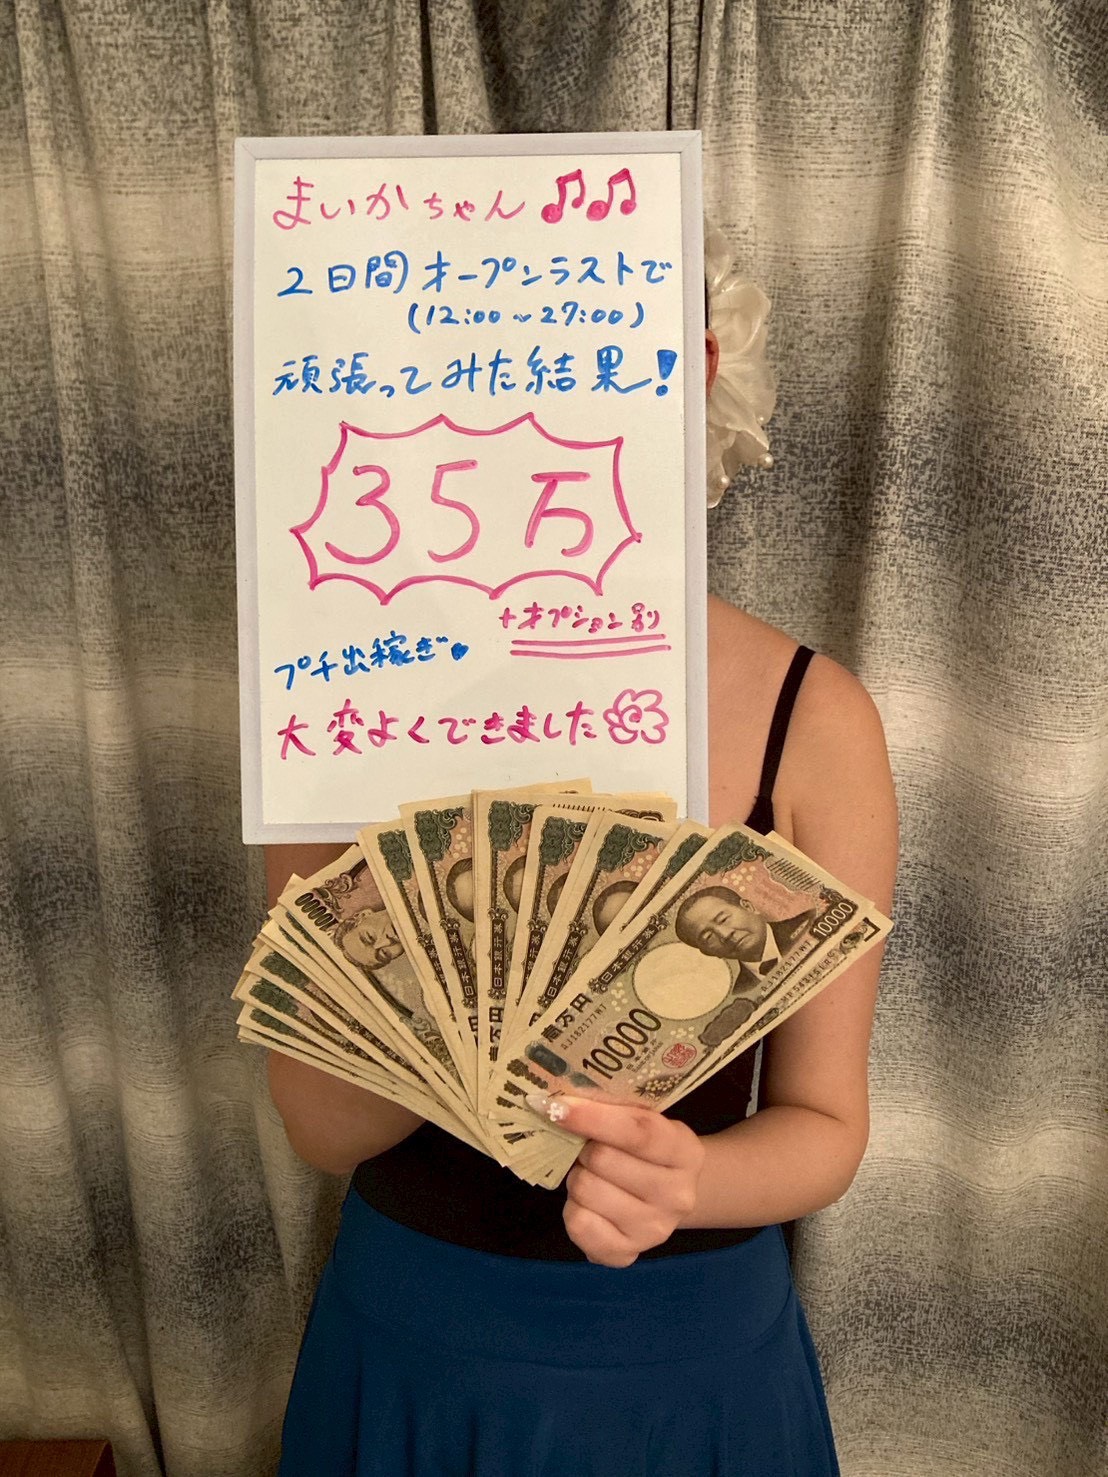 まいかちゃん♫♫
2日間オープンラストで
(12:00~27:00)
頑張ってみた結果!
35万
+オプション別
プチ出稼ぎ♥
大変よくできました
10000
日本銀行券
壱万円
10000